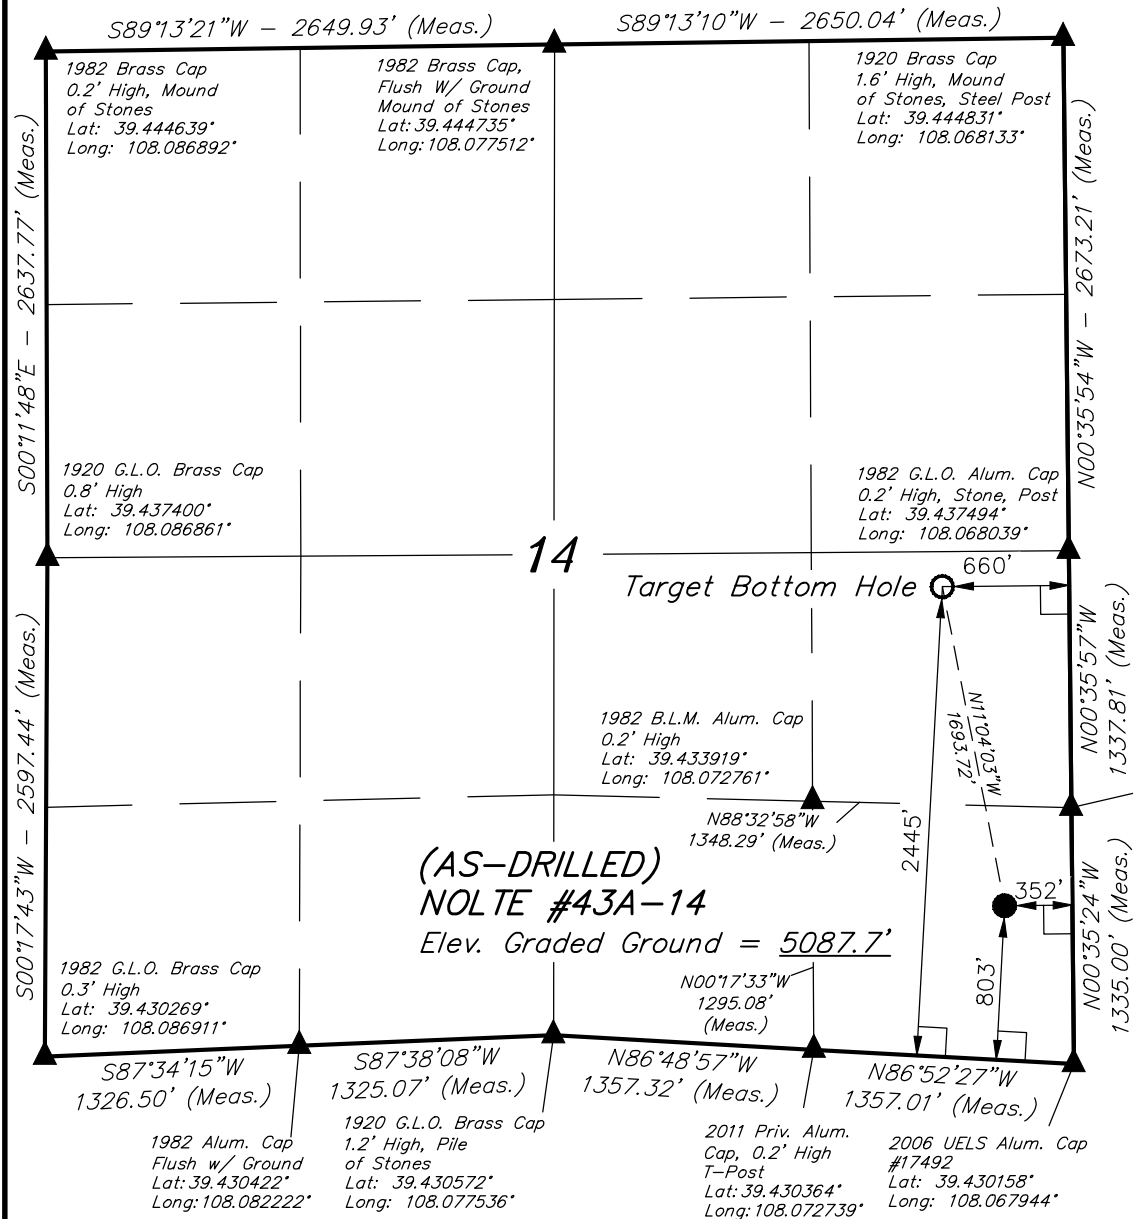 S89°13'21"W – 2649.93' (Meas.)
S89°13'10"W – 2650.04' (Meas.)
1982 Brass Cap
0.2' High, Mound
of Stones
Lat: 39.444639°
Long: 108.086892°
1982 Brass Cap,
Flush W/ Ground
Mound of Stones
Lat: 39.444735°
Long: 108.077512°
1920 Brass Cap
1.6' High, Mound
of Stones, Steel Post
Lat: 39.444831°
Long: 108.068133°
S00°11'48"E – 2637.77' (Meas.)
N00°35'54"W – 2673.21' (Meas.)
1920 G.L.O. Brass Cap
0.8' High
Lat: 39.437400°
Long: 108.086861°
1982 G.L.O. Alum. Cap
0.2' High, Stone, Post
Lat: 39.437494°
Long: 108.068039°
14
660'
Target Bottom Hole
S00°17'43"W – 2597.44' (Meas.)
N00°35'57"W
1337.81' (Meas.)
N11°04'03"W
1693.72'
1982 B.L.M. Alum. Cap
0.2' High
Lat: 39.433919°
Long: 108.072761°
N88°32'58"W
1348.29' (Meas.)
2445'
(AS–DRILLED)
NOLTE #43A–14
Elev. Graded Ground = 5087.7'
352'
803'
N00°35'24"W
1335.00' (Meas.)
1982 G.L.O. Brass Cap
0.3' High
Lat: 39.430269°
Long: 108.086911°
N00°17'33"W
1295.08'
(Meas.)
S87°34'15"W
1326.50' (Meas.)
S87°38'08"W
1325.07' (Meas.)
N86°48'57"W
1357.32' (Meas.)
N86°52'27"W
1357.01' (Meas.)
1982 Alum. Cap
Flush w/ Ground
Lat: 39.430422°
Long: 108.082222°
1920 G.L.O. Brass Cap
1.2' High, Pile
of Stones
Lat: 39.430572°
Long: 108.077536°
2011 Priv. Alum.
Cap, 0.2' High
T–Post
Lat: 39.430364°
Long: 108.072739°
2006 UELS Alum. Cap
#17492
Lat: 39.430158°
Long: 108.067944°